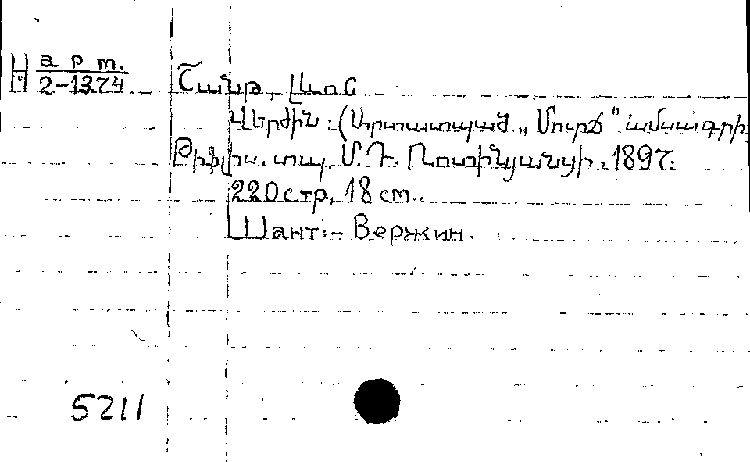 Н арт.
2-1374. Շանթ, Լևոն
Վերժին: (Արտատպած „Մուրճ" ամսագրի
Թիֆլիս. տպ. Մ. Դ. Ռոտինյանցի. 1897.
220стр. 18 см.
Шант:- Вержин.
5211